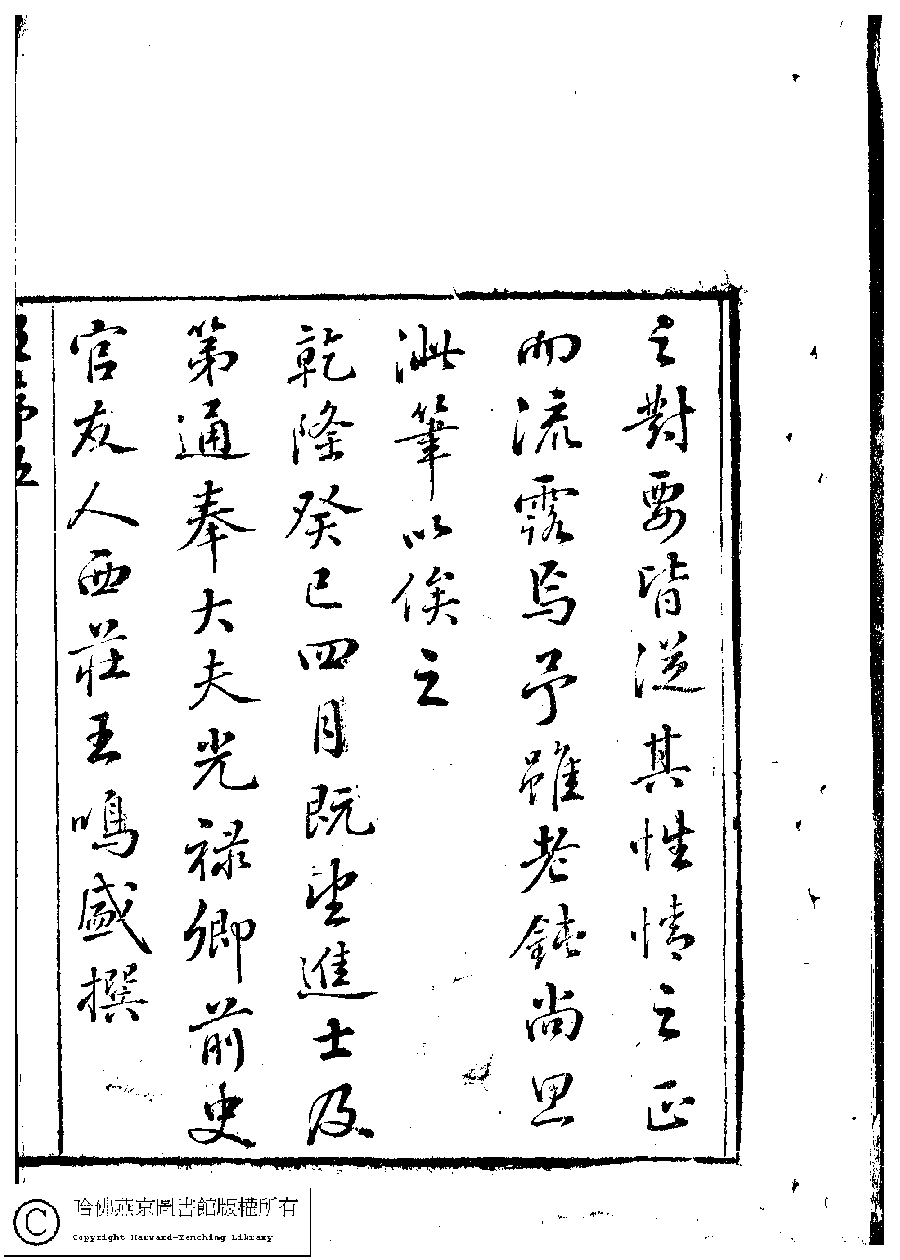 之對要皆從其性情之正
而流露焉予雖老鈍尚思
泚筆以俟之
乾隆癸巳四月既望進士及
第通奉大夫光祿卿前史
官友人西莊王鳴盛撰
哈佛燕京圖書館版權所有
Copyright Harvard-Yenching Library